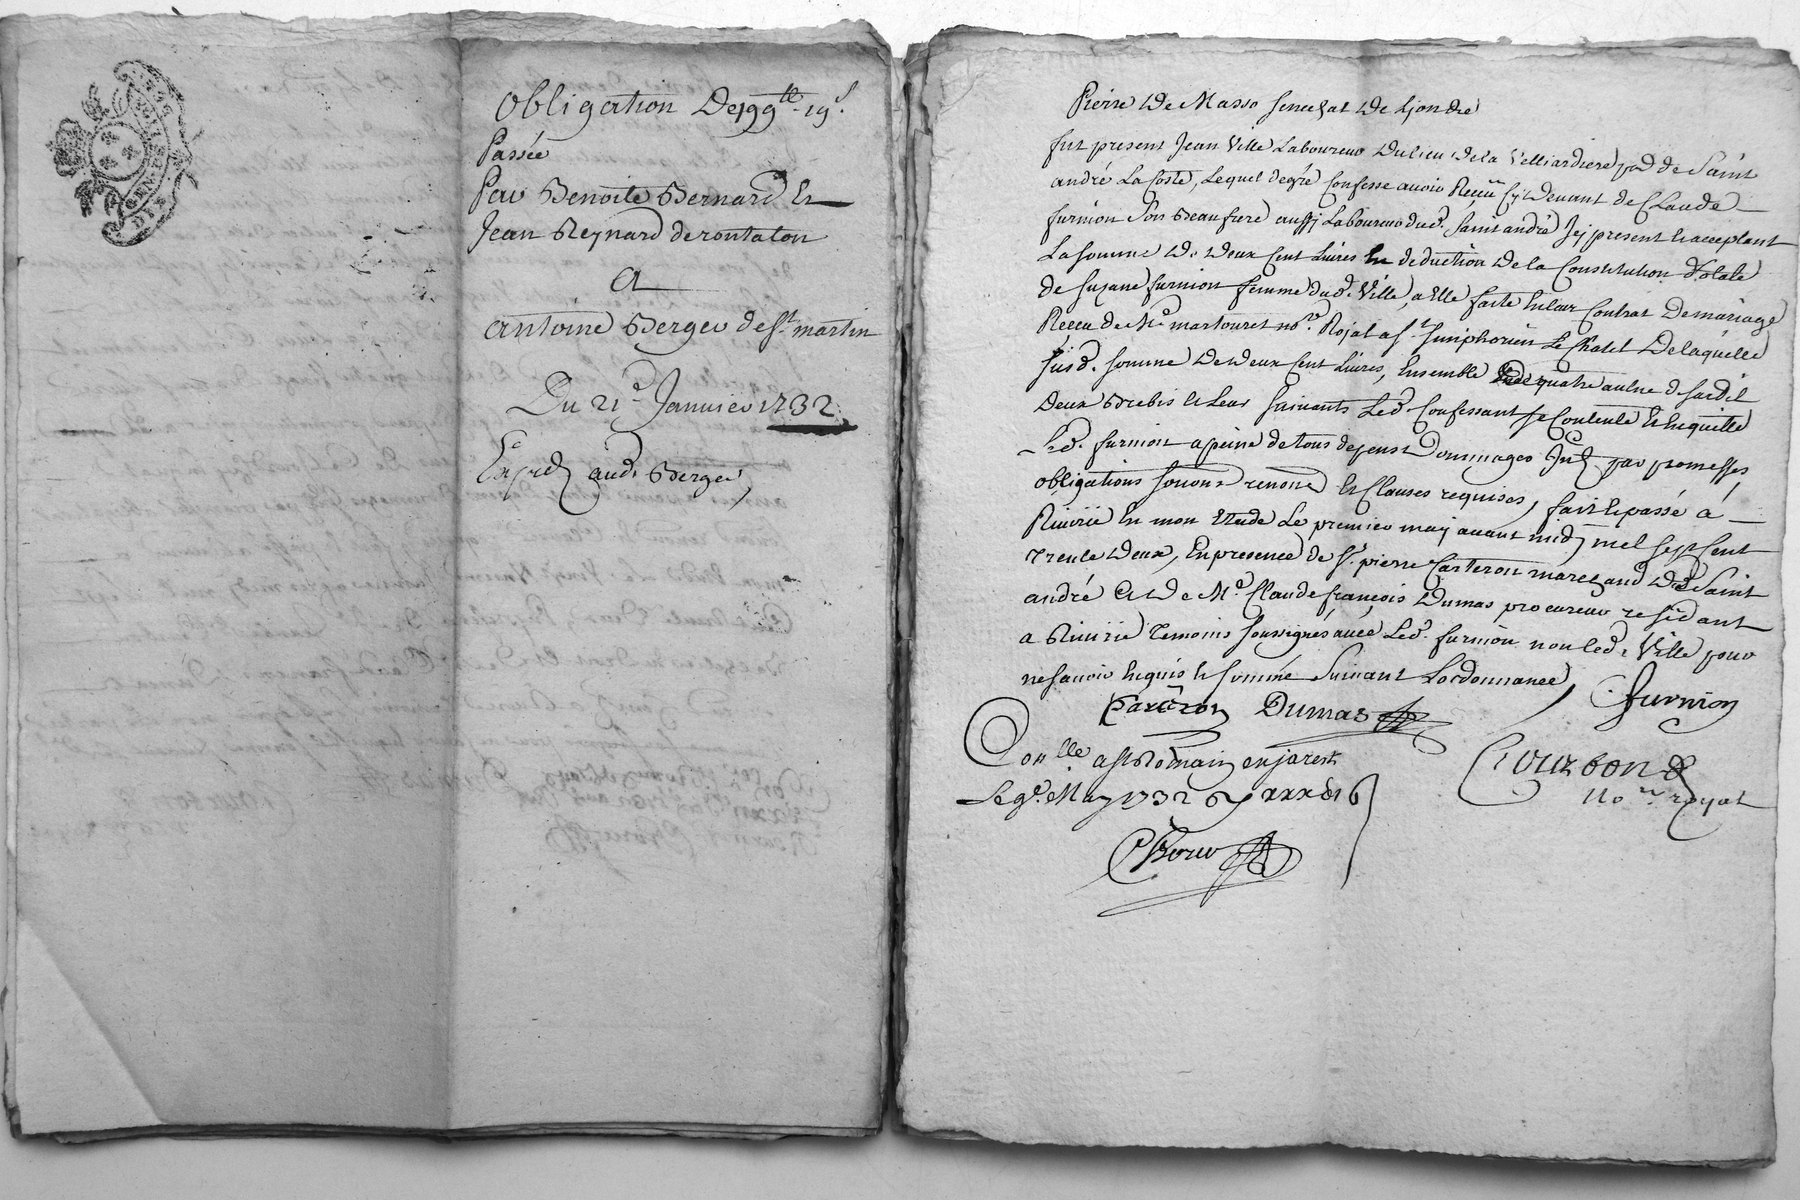 Obligation De 199ᵗᵗ 19ˢ
Passée
Par Benoite Bernard Et
Jean Reynard de rontalon
A
Antoine Berger de Sᵗ martin
Du 21ᵉ Janvier 1732
Expéd aud. Berger
Pierre De Masso senechal De Lyon &c
fut present Jean Ville Laboureur du lieu de la Velliardiere psse de Saint
andré La Coste, Lequel de gré Confesse avoir Reçeu Cy Devant de Claude
furnion Son Beaufrere aussy Laboureur dud. Saint andré Jcy present et acceptant
La somme De Deux Cent Livres En deduction De la Constitution Dotale
de suzane furnion femme dud. Ville, a Elle faite En leur Contrat De mariage
Receu de Mᵉ martouret noʳᵉ Royal a Sᵗ Simphorien Le Chatel De laquelle
susd. somme De Deux Cent Livres, Ensemble quatre aulne de
Deux Brebis et Leur suivants Led. Confessant se Contente Et En quitte
Led. furnion a peine de tous depens Dommages par promesses
obligations renon Et Clauses requises, fait Et passé á
Riverie En mon Etude Le premier may avant midy mil sept Cent
Trente Deux, En presence de Sʳ pierre Carteron marchand De Saint
andré Et De Mᵉ Claude françois Dumas procureur residant
a Riverie Temoins Soussignés avec Led. furnion non led. Ville pour
ne savoir Enquis Et sommé Suivant Lordonnance
Carteron Dumas furnion
Conllé a St Romain en jarest
Le 9ᵉ May 1732
Courbon
Noʳᵉ royal